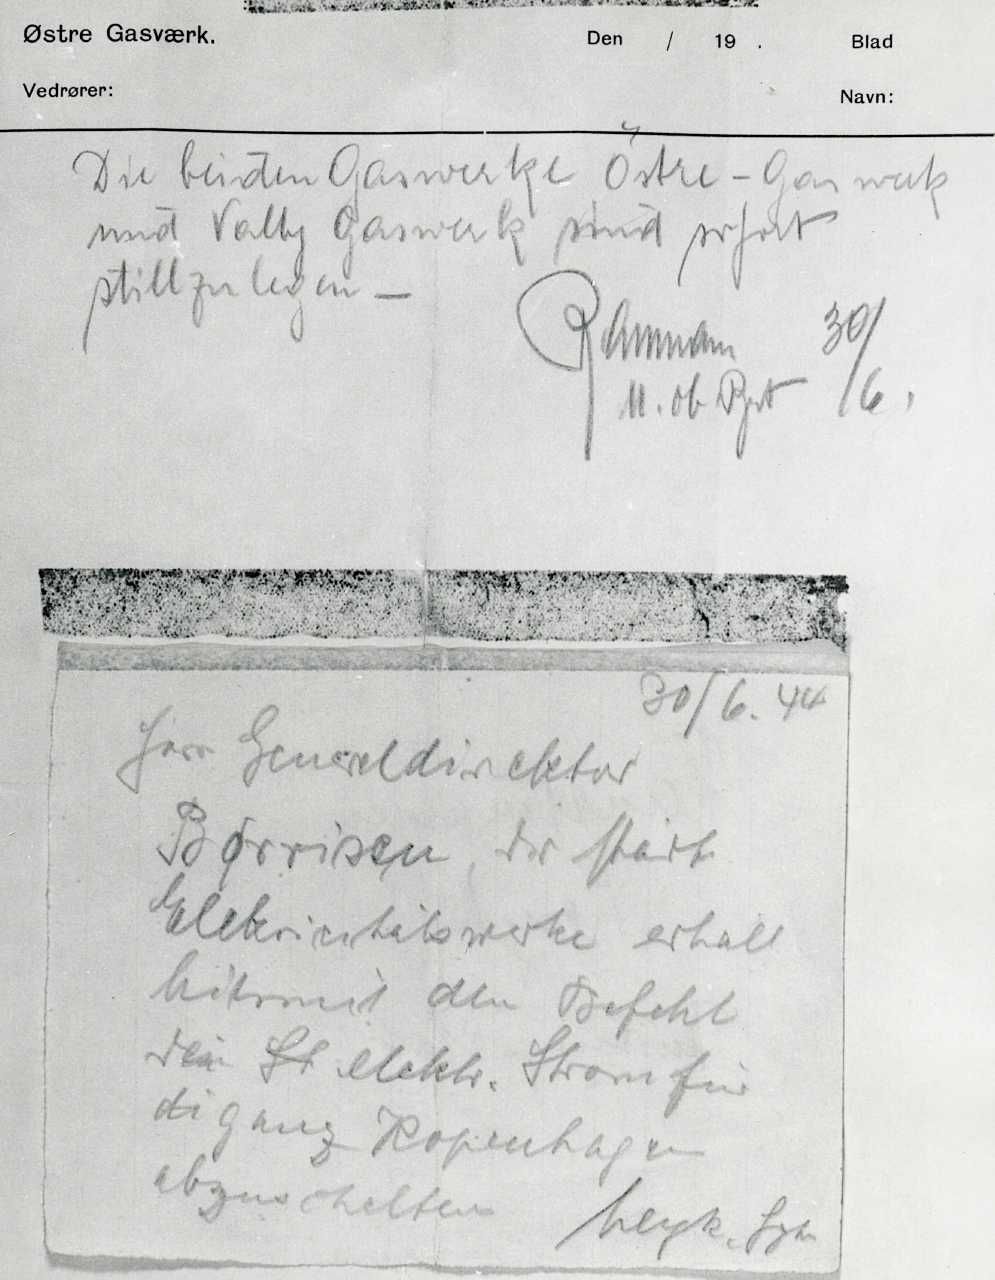 Østre Gasværk.
Den / 19 . Blad
Vedrører:
Navn:
Die beiden Gaswerke Östre-Gaswerk
und Valby Gaswerk sind sofort
stillzulegen —
30/6.
30/6. 44
Herr Generaldirektor
Børrisen, der städt
Elektricitätswerke erhält
hiermit den Befehl
den St elektr. Strom für
di ganz Kopenhagen
abzuschalten